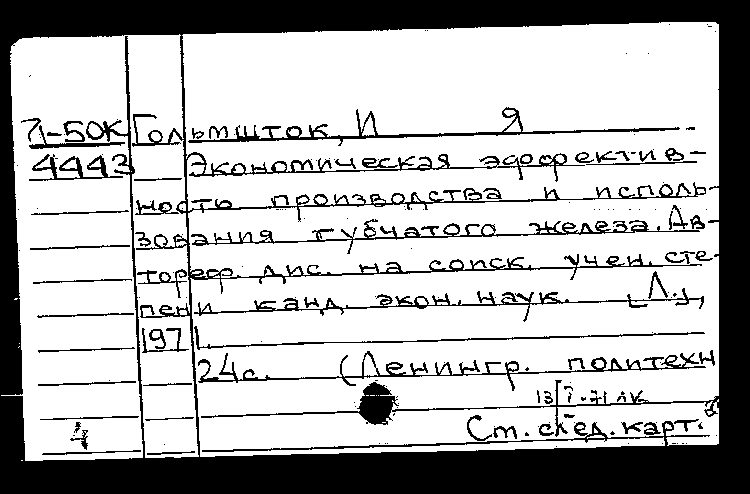 Л-50К Гольмшток, И Я
4443 Экономическая эффектив-
ность производства и исполь-
зования губчатого железа. Ав-
тореф. дис. на соиск. учен. сте-
пени канд. экон. наук. [Л.],
1971.
24с. (Ленингр. политехн
71 ЛК
4 См. след. карт.